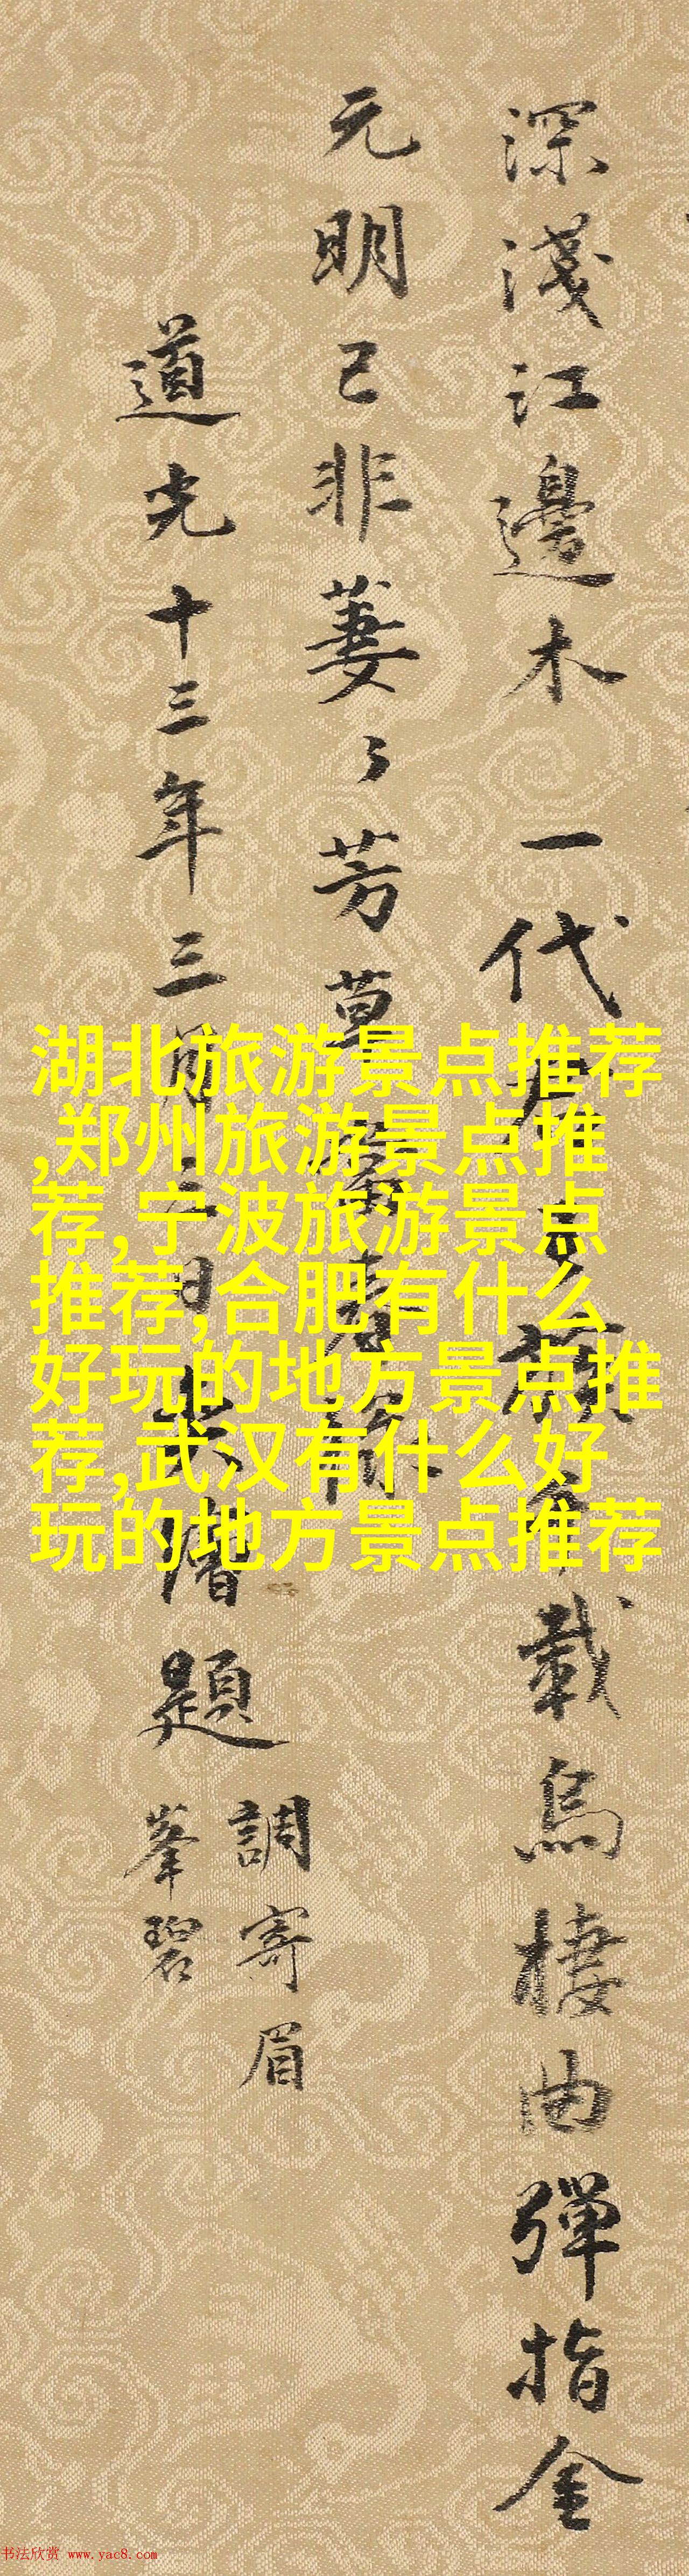 深淺江邊木 一代
載烏棲曲彈指金
元明已非萋々芳草
道光十三年三月三日
題
調寄眉
峯碧
湖北旅游景点推荐
,郑州旅游景点推
荐,宁波旅游景点
推荐,合肥有什么
好玩的地方景点推
荐,武汉有什么好
玩的地方景点推荐
书法欣赏 www.yac8.com